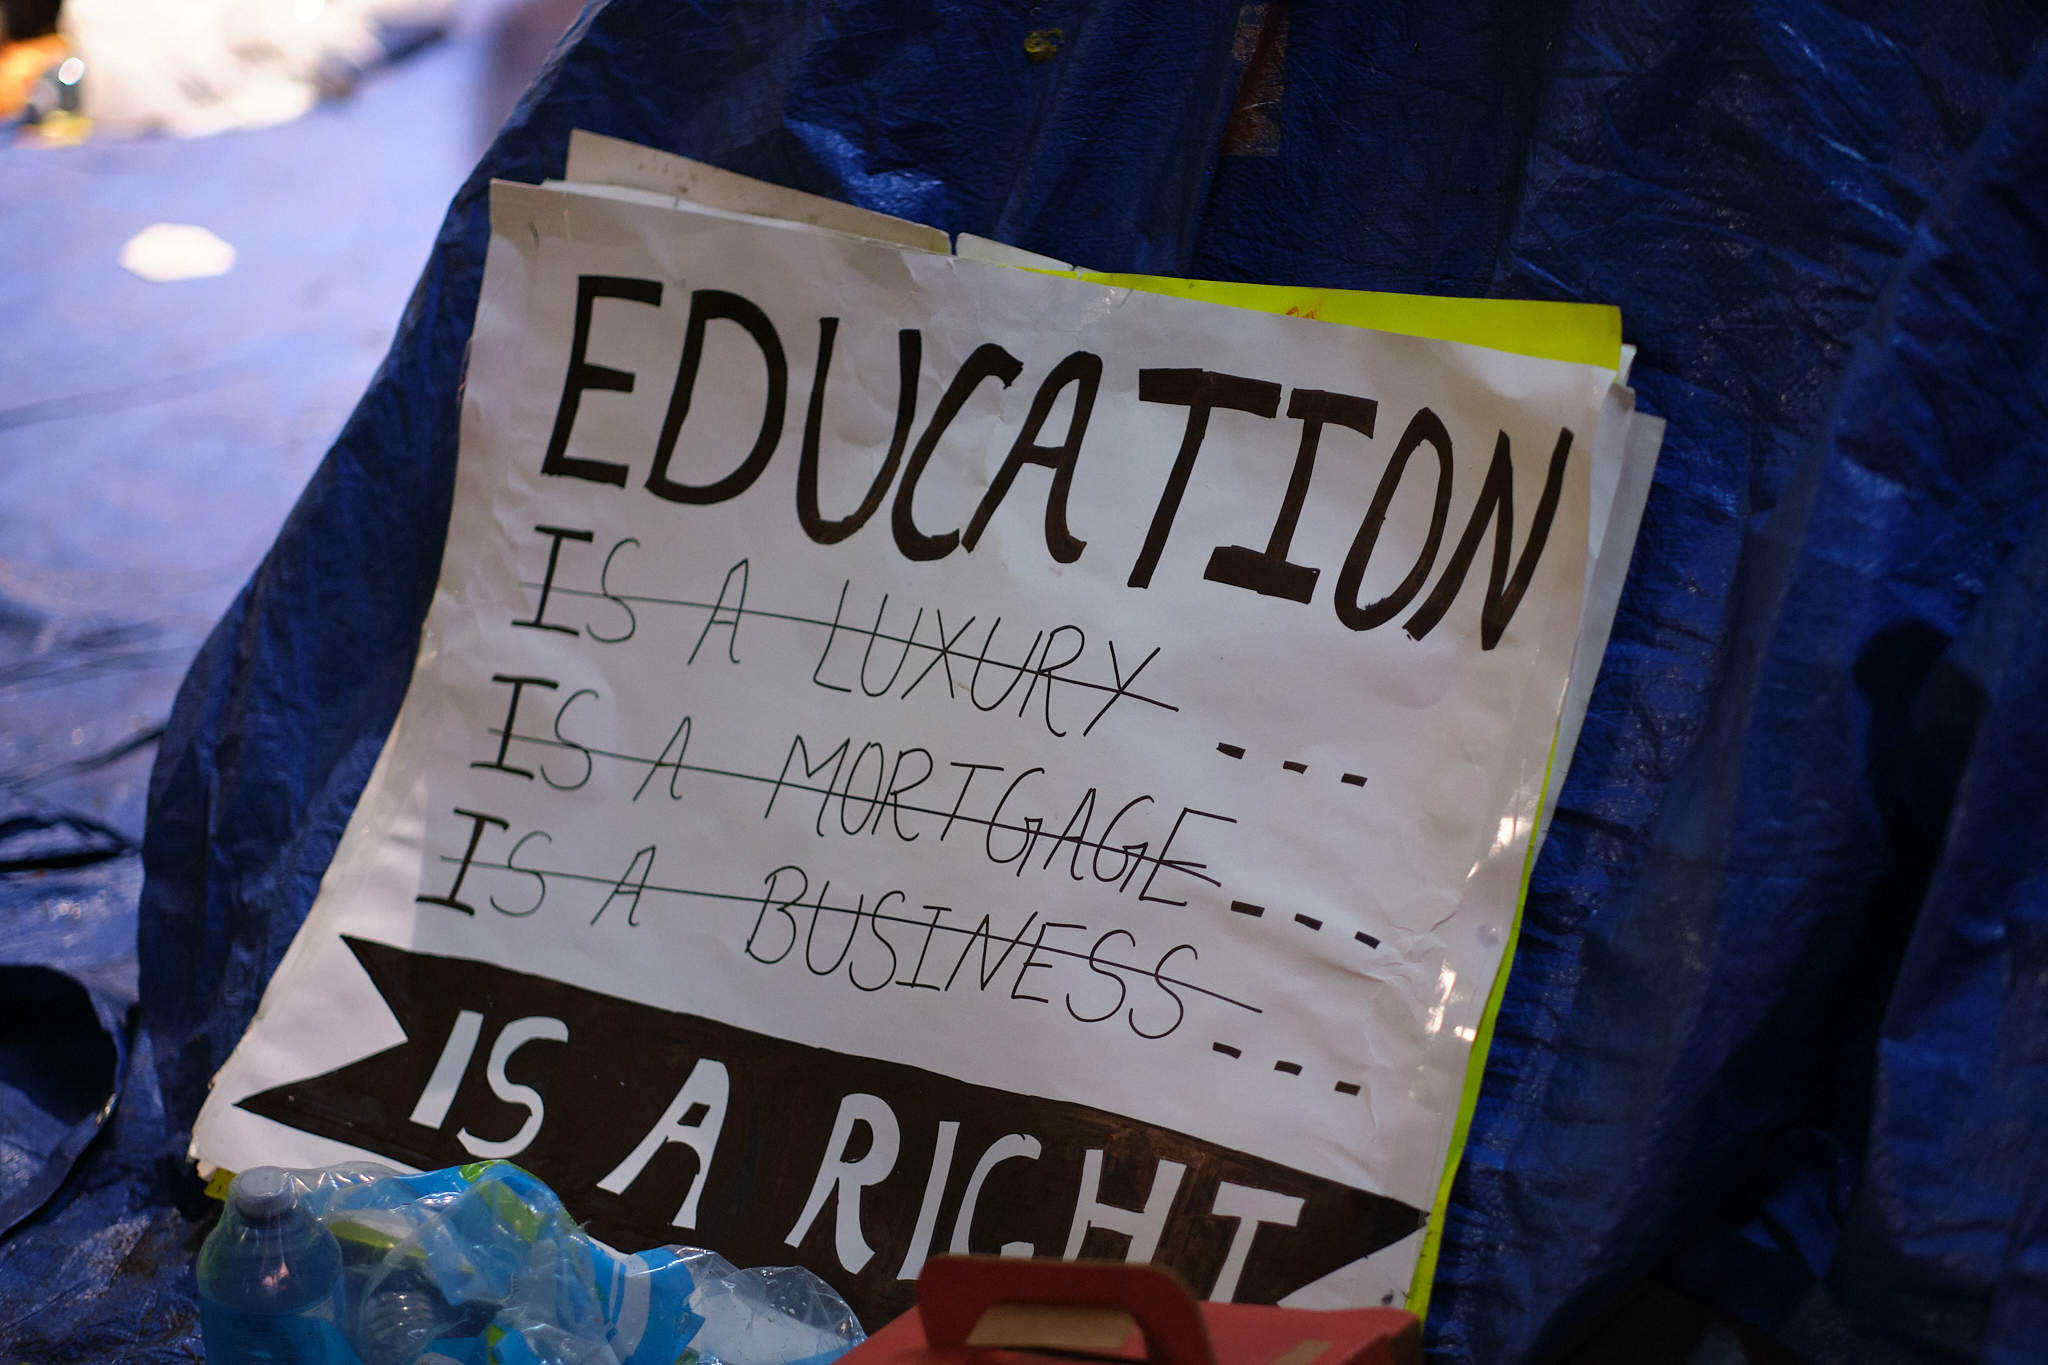 EDUCATION
IS A LUXURY ---
IS A MORTGAGE ---
IS A BUSINESS ---
IS A RIGHT